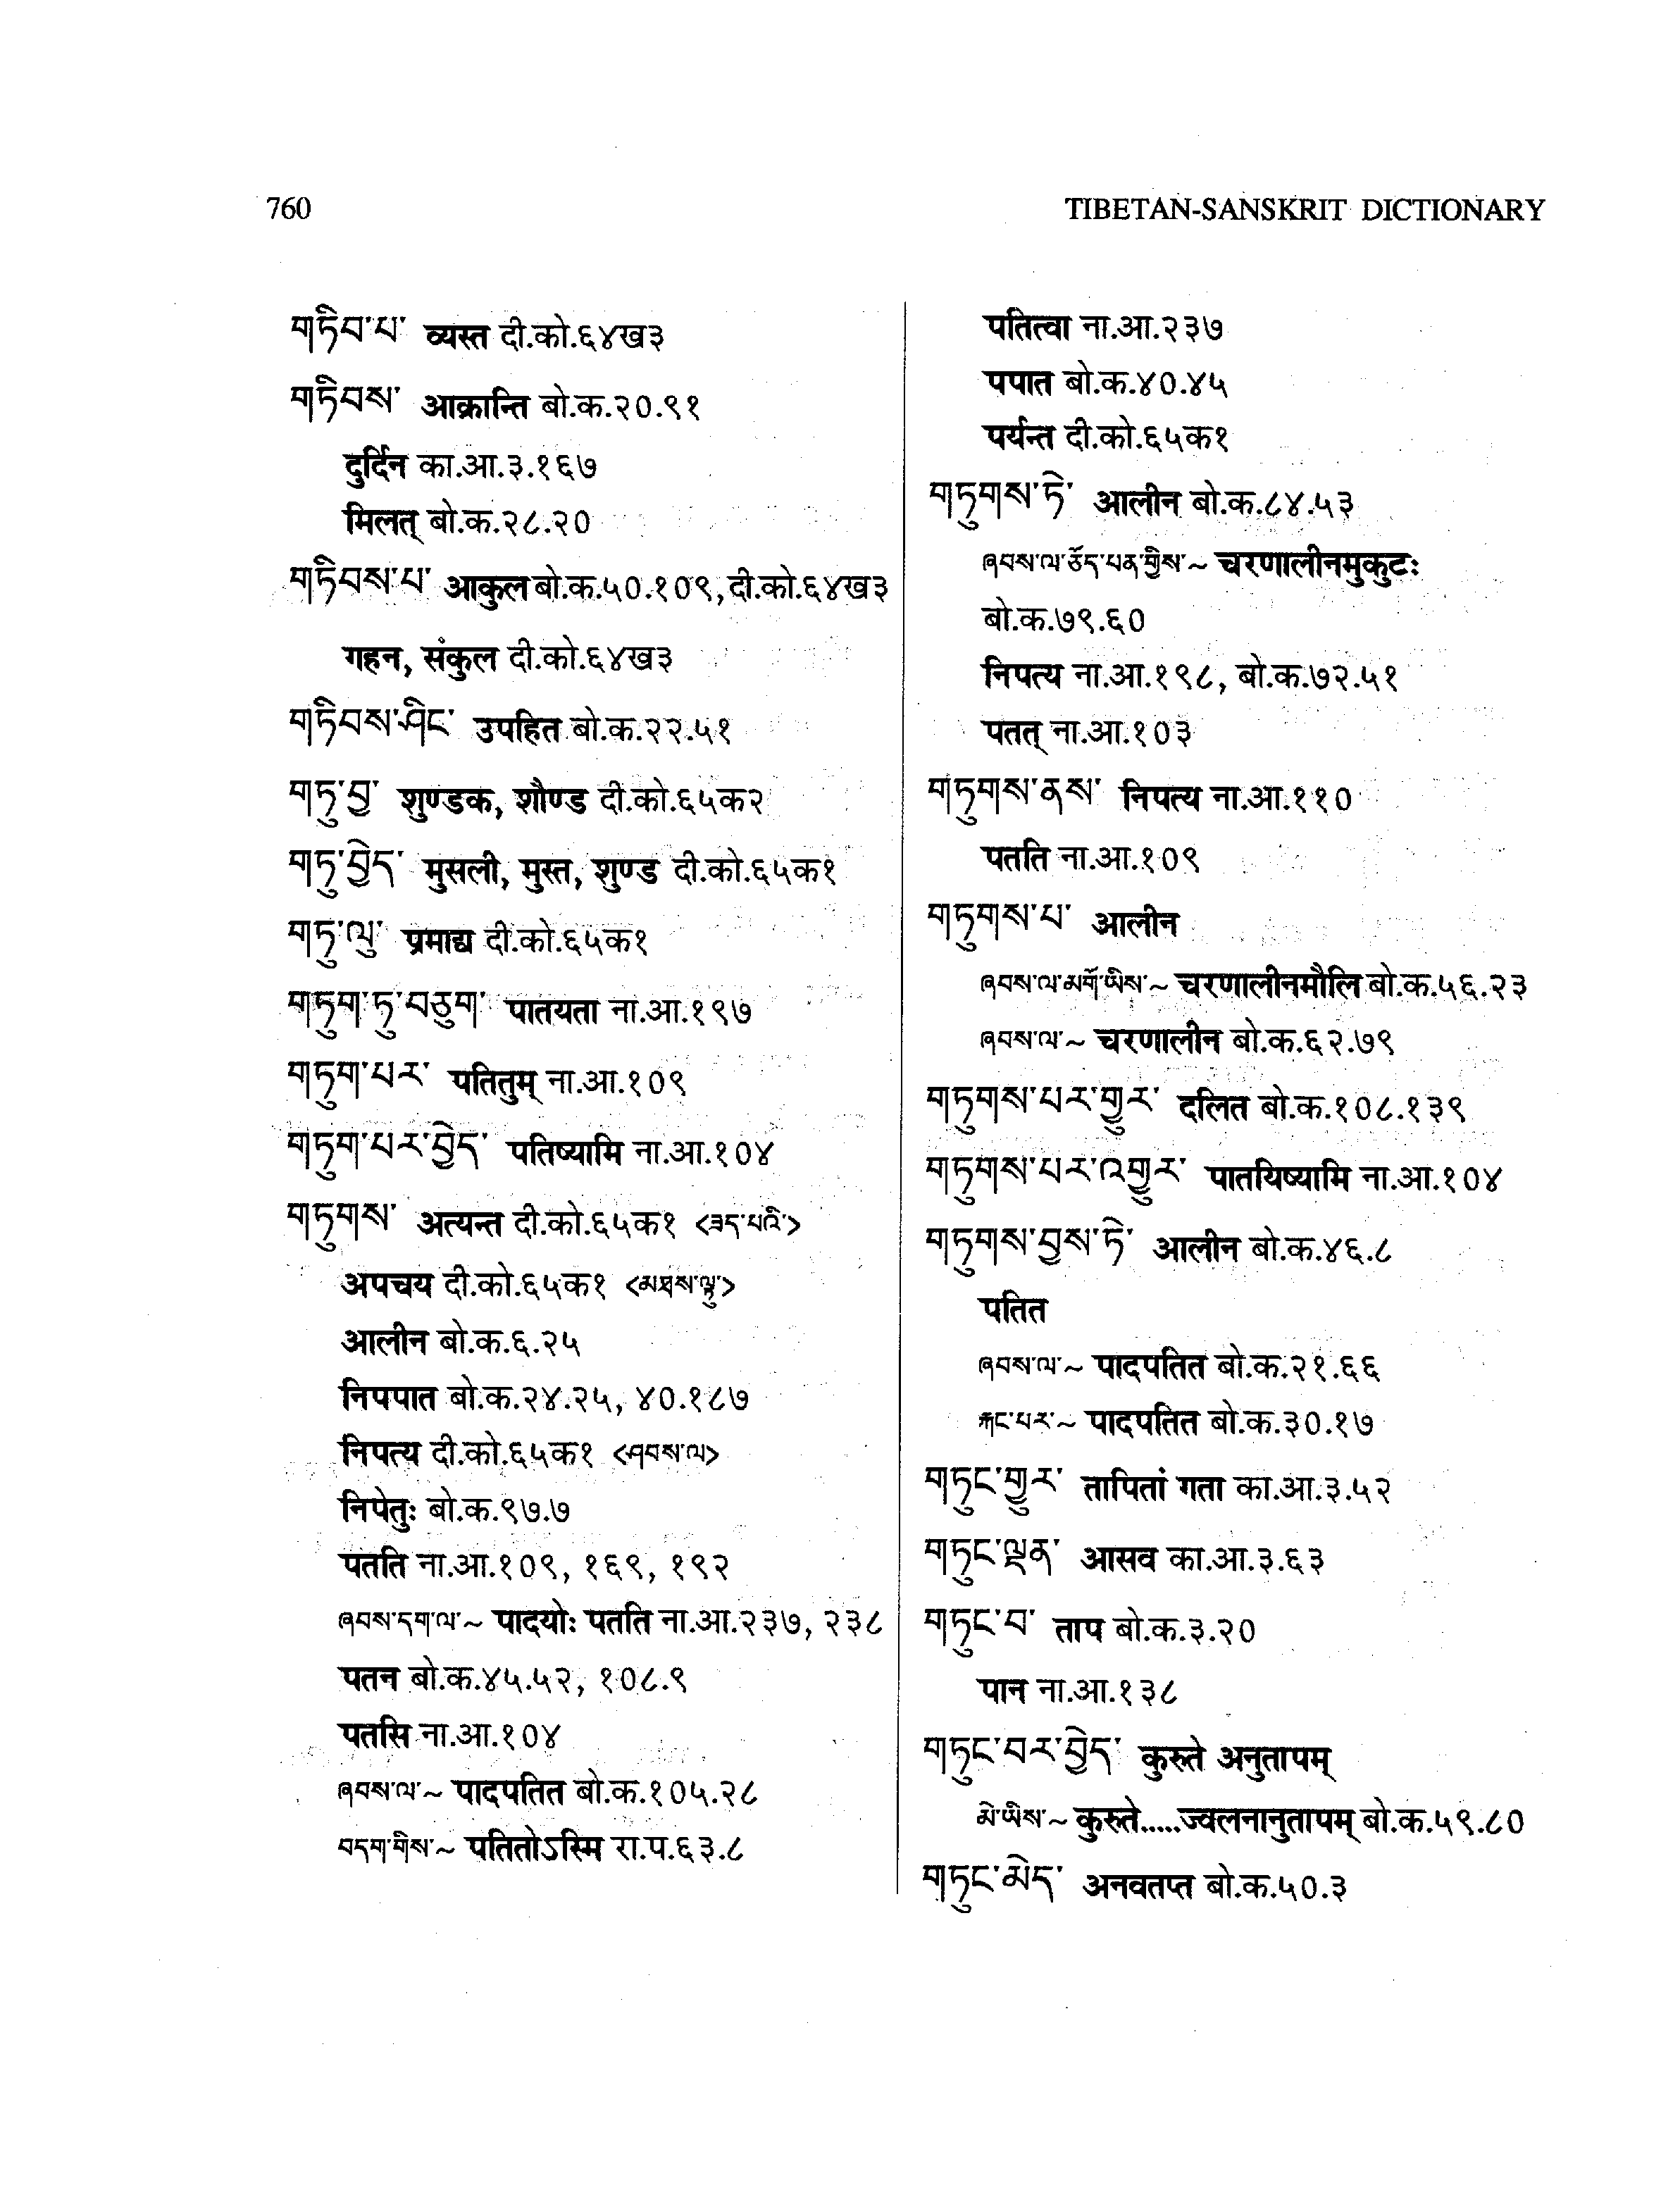 760
TIBETAN-SANSKRIT DICTIONARY
གཏིབ་པ་ व्यस्त दी.को.६४ख३
གཏིབས་ आक्रान्ति बो.क.२०.९१
दुर्दिन का.आ.३.१६७
मिलत् बो.क.२८.२०
གཏིབས་པ་ आकुल बो.क.५०.१०९, दी.को.६४ख३
गहन, संकुल दी.को.६४ख३
གཏིབས་ཤིང་ उपहित बो.क.२२.५१
གཏུ་བྱ་ शुण्डक, शौण्ड दी.को.६५क२
གཏུ་བྱེད་ मुसली, मुस्त, शुण्ड दी.को.६५क१
གཏུ་ལུ་ प्रमाद्य दी.को.६५क१
གཏུག་ཏུ་བཅུག་ पातयता ना.आ.१९७
གཏུག་པར་ पतितुम् ना.आ.१०९
གཏུག་པར་བྱེད་ पतिष्यामि ना.आ.१०४
གཏུགས་ अत्यन्त दी.को.६५क१ <ཟད་པའི་>
अपचय दी.को.६५क१ <མཐས་ལྟུ་>
आलीन बो.क.६.२५
निपपात बो.क.२४.२५, ४०.१८७
निपत्य दी.को.६५क१ <ཤབས་ལ>
निपेतुः बो.क.९७.७
पतति ना.आ.१०९, १६९, १९२
ཞབས་དག་ལ་~ पादयोः पतति ना.आ.२३७, २३८
पतन बो.क.४५.५२, १०८.९
पतसि ना.आ.१०४
ཞབས་ལ་~ पादपतित बो.क.१०५.२८
བདག་གིས་~ पतितोऽस्मि रा.प.६३.८
पतित्वा ना.आ.२३७
पपात बो.क.४०.४५
पर्यन्त दी.को.६५क१
གཏུགས་ཏེ་ आलीन बो.क.८४.५३
ཞབས་ལ་ཅོད་པན་གྱིས་~ चरणालीनमुकुटः
बो.क.७९.६०
निपत्य ना.आ.१९८, बो.क.७२.५१
पतत् ना.आ.१०३
གཏུགས་ནས་ निपत्य ना.आ.११०
पतति ना.आ.१०९
གཏུགས་པ་ आलीन
ཞབས་ལ་མགོ་ཡིས་~ चरणालीनमौलि बो.क.५६.२३
ཞབས་ལ་~ चरणालीन बो.क.६२.७९
གཏུགས་པར་གྱུར་ दलित बो.क.१०८.१३९
གཏུགས་པར་འགྱུར་ पातयिष्यामि ना.आ.१०४
གཏུགས་བྱས་ཏེ་ आलीन बो.क.४६.८
पतित
ཞབས་ལ་~ पादपतित बो.क.२१.६६
རྐང་པར་~ पादपतित बो.क.३०.१७
གཏུང་གྱུར་ तापितां गता का.आ.३.५२
གཏུང་ལྡན་ आसव का.आ.३.६३
གཏུང་བ་ ताप बो.क.३.२०
पान ना.आ.१३८
གཏུང་བར་བྱེད་ कुरुते अनुतापम्
མེ་ཡིས་~ कुरुते.....ज्वलनानुतापम् बो.क.५९.८०
གཏུང་མེད་ अनवतप्त बो.क.५०.३